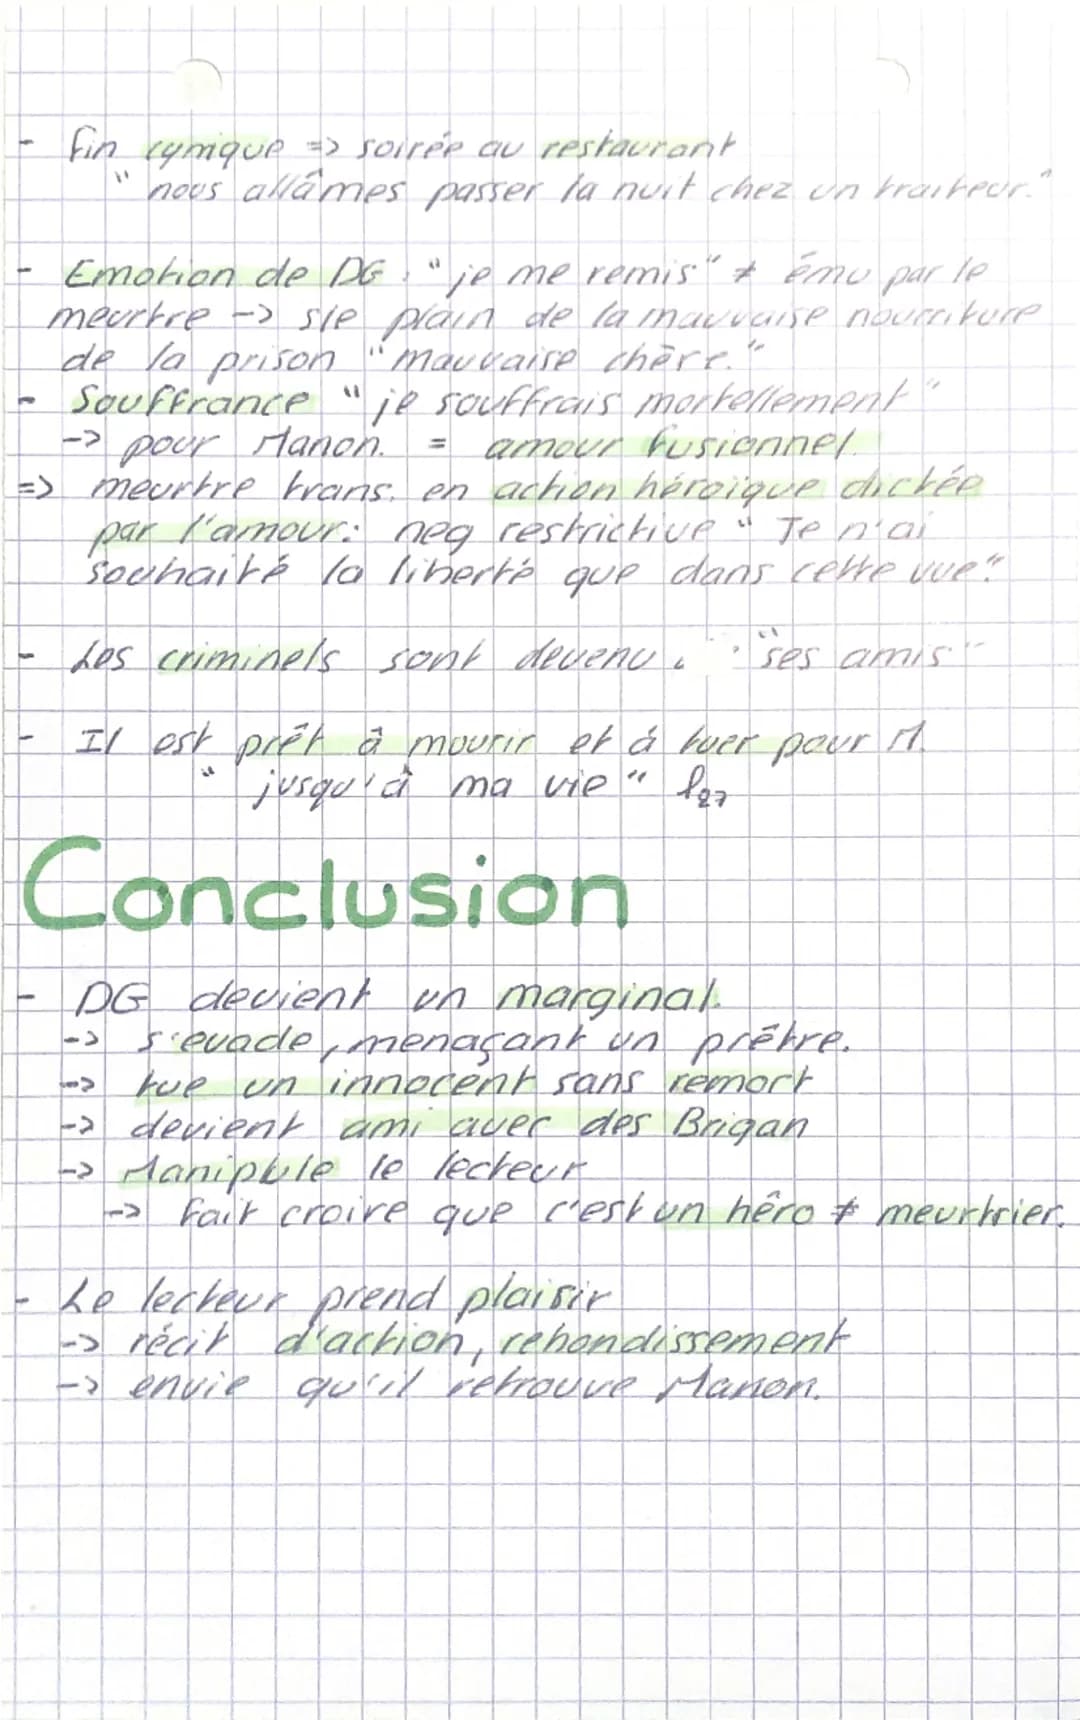 - Fin cynique => soirée au restaurant
" nous allâmes passer la nuit chez un traiteur."
- Emotion de DG : " je me remis" ≠ ému par le
meurtre -> s/e plain de la mauvaise nourriture
de la prison "mauvaise chère."
- Souffrance " je souffrais mortellement"
-> pour Manon. = amour fusionnel.
=> meurtre trans. en action héroïque dictée
par l'amour: neg restrictive " Je n'ai
souhaité la liberté que dans cette vue."
- Les criminels sont devenu : "ses amis"
- Il est prêt à mourir et à tuer pour M.
" jusqu'à ma vie " l27
Conclusion
- DG devient un marginal.
-> s'evade, menaçant un prêtre.
-> tue un innocent sans remort
-> devient ami avec des Brigan
-> Manipule le lecteur
-> Fait croire que c'est un hêro ≠ meurtrier.
- Le lecteur prend plaisir
-> récit d'action, rebondissement
-> envie qu'il retrouve Manon.